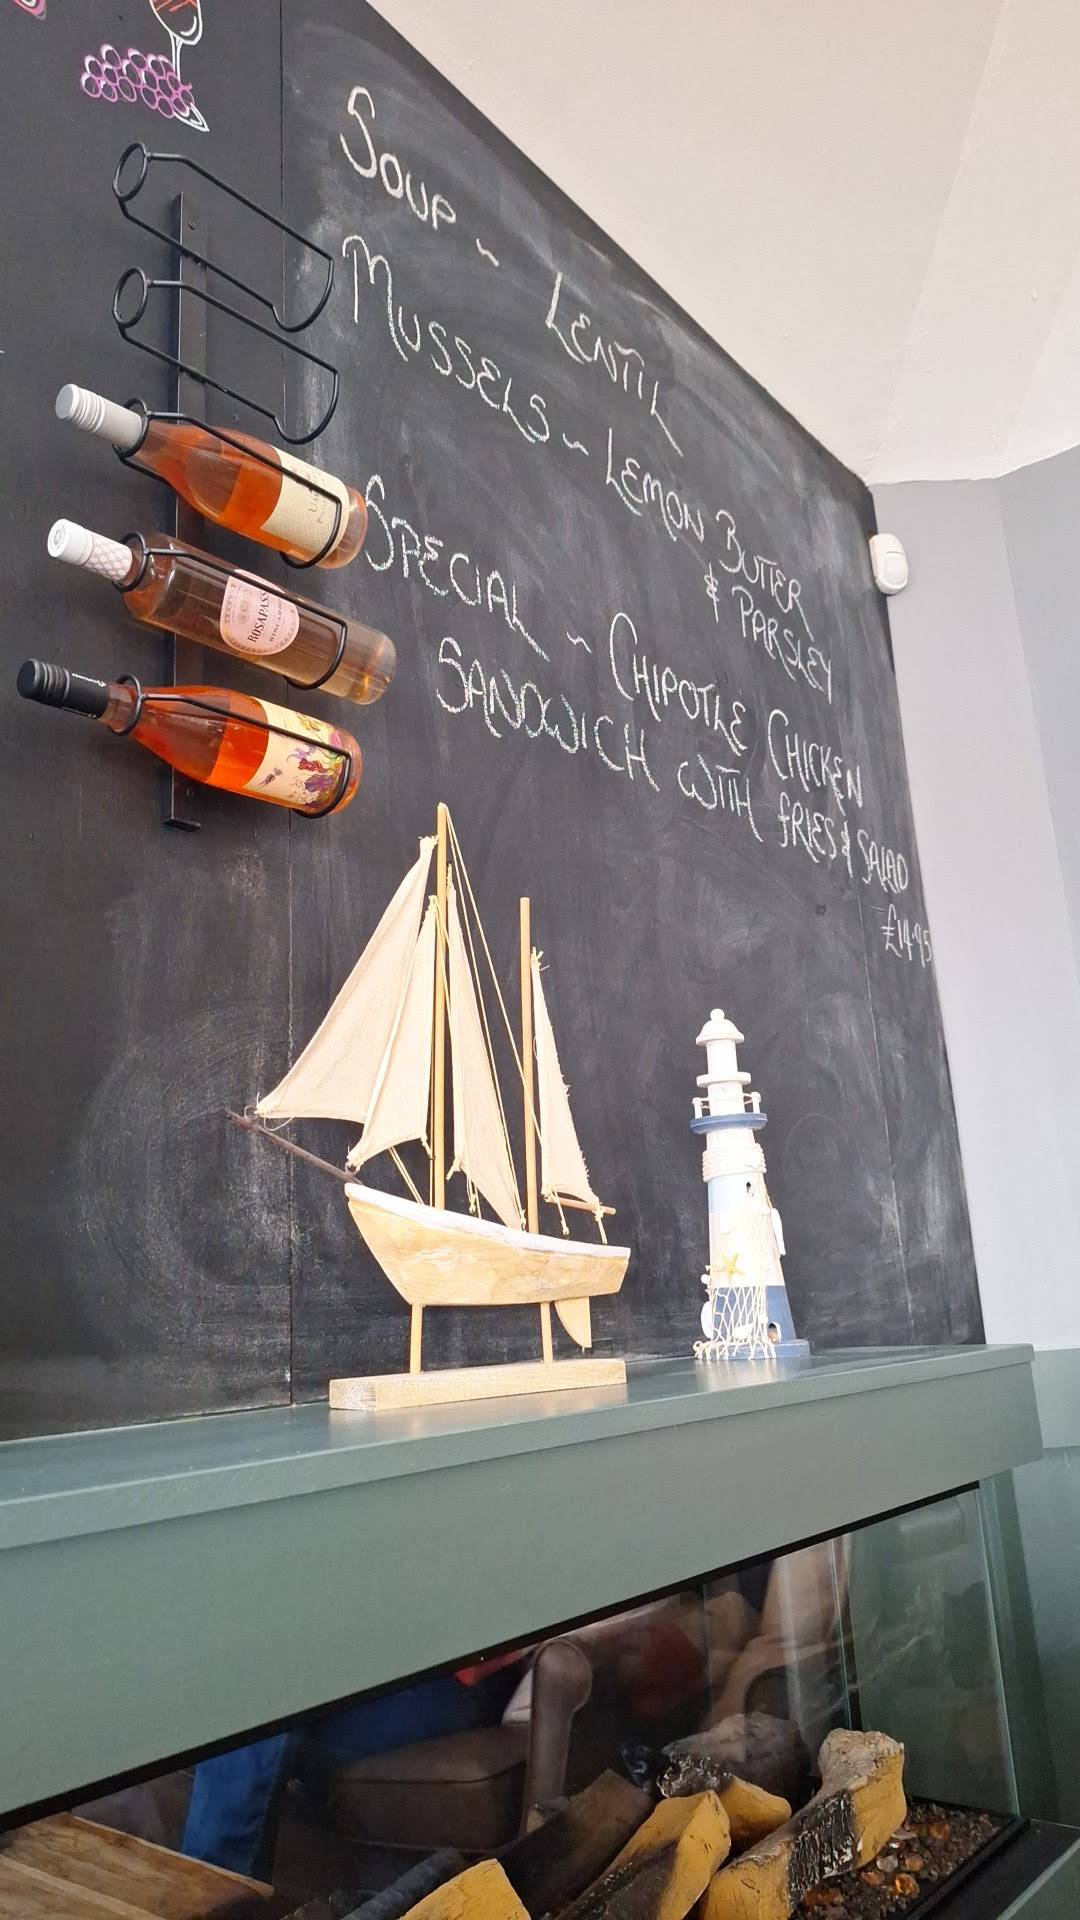 SOUP ~ LENTIL
MUSSELS ~ LEMON BUTTER
& PARSLEY
SPECIAL ~ CHIPOTLE CHICKEN
SANDWICH WITH FRIES & SALAD
£14.95
ROSAPASSO